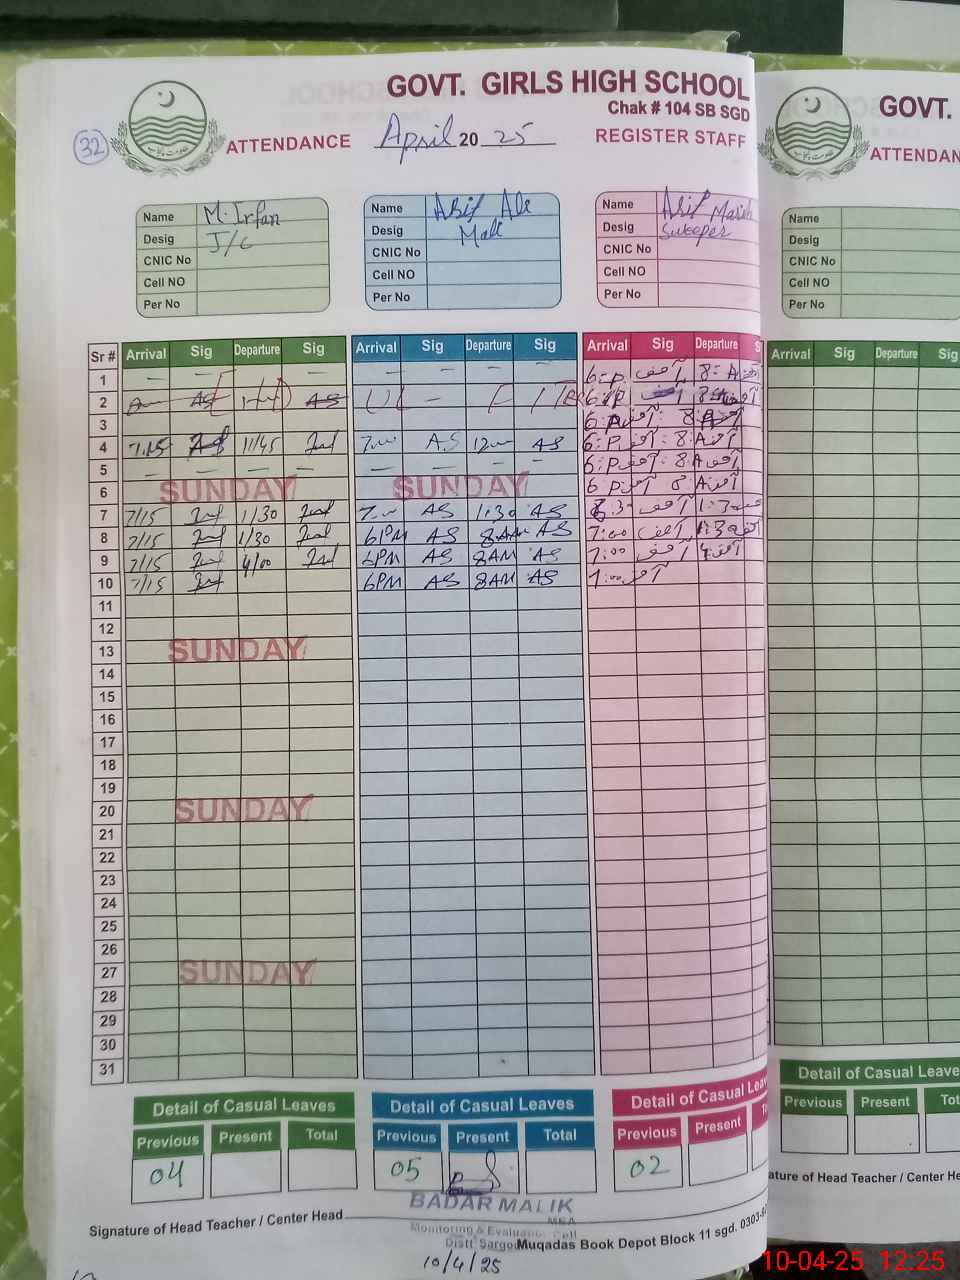 GOVT. GIRLS HIGH SCHOOL
Chak # 104 SB SGD
32 ATTENDANCE April 2025 REGISTER STAFF
Name M. Irfan
Desig J/C
CNIC No
Cell NO
Per No
Name Asif Ali
Desig Mali
CNIC No
Cell NO
Per No
Name Asif Masih
Desig Sweeper
CNIC No
Cell NO
Per No
Sr # Arrival Sig Departure Sig Arrival Sig Departure Sig Arrival Sig Departure S
1 – – – – – – 6:P آصف 8:A
2 AS AS 6:P
3 6:P آصف 8:A
4 7.15 11/45 7:00 AS 12:00 AS 6:P آصف 8:A
5 – – – – – – – 6:P آصف 8:A
6 SUNDAY SUNDAY 6:P آصف 8:A
7 7/15 1/30 7:00 AS 1:30 AS آصف 1:3
8 7/15 1/30 6PM AS 8AM AS 7:00 آصف 1:30
9 7/15 4/00 6PM AS 8AM AS 7:00 آصف
10 7/15 6PM AS 8AM AS 7:00 آصف
11
12
13 SUNDAY
14
15
16
17
18
19
20 SUNDAY
21
22
23
24
25
26
27 SUNDAY
28
29
30
31
Detail of Casual Leaves
Previous Present Total
04
Detail of Casual Leaves
Previous Present Total
05
Detail of Casual Leav
Previous Present
02
BADAR MALIK
MEA
Monitoring & Evaluation Cell
Distt. Sargo
Signature of Head Teacher / Center Head
Muqadas Book Depot Block 11 sgd. 0303-
10/4/25
GOVT.
ATTENDAN
Name
Desig
CNIC No
Cell NO
Per No
Arrival Sig Departure Sig
Detail of Casual Leave
Previous Present Tot
ature of Head Teacher / Center He
10-04-25 12:25